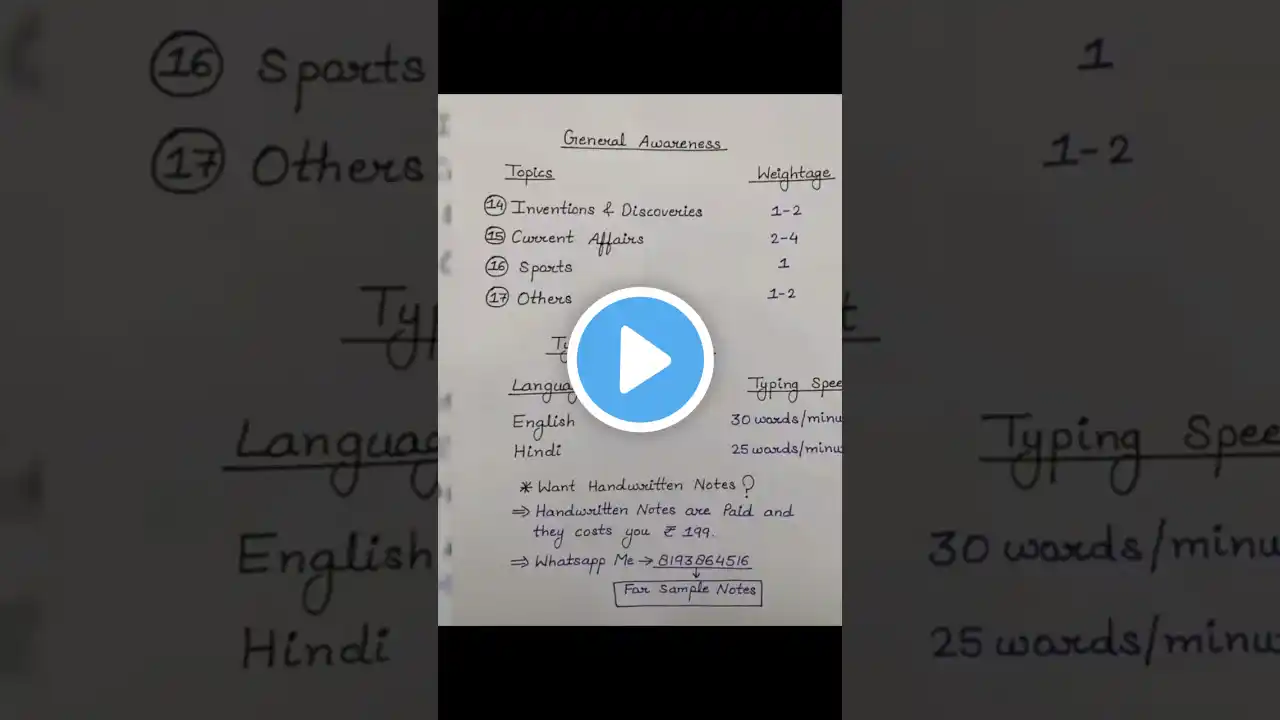 General Awareness
Topics Weightage
14 Inventions & Discoveries 1-2
15 Current Affairs 2-4
16 Sports 1
17 Others 1-2
Ty
Langua Typing Spee
English 30 words/minu
Hindi 25 words/minu
* Want Handwritten Notes?
⇒ Handwritten Notes are Paid and
they costs you ₹ 199.
⇒ Whatsapp Me → 8193864516
For Sample Notes
16 Sports 1
17 Others 1-2
Typ t
Languag Typing Spee
English 30 words/minu
Hindi 25 words/minu